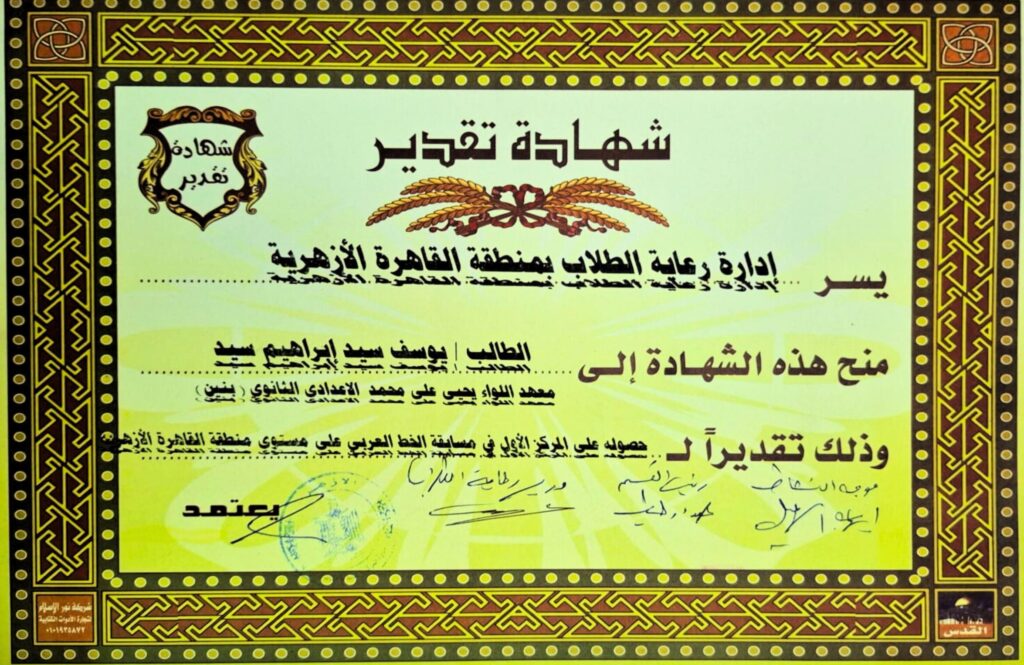 شهادة تقدير
شهادة
تقدير
يسر إدارة رعاية الطلاب بمنطقة القاهرة الأزهرية
منح هذه الشهادة إلى الطالب / يوسف سيد إبراهيم سيد
معهد اللواء يحيى على محمد الاعدادى الثانوى (بنين)
وذلك تقديراً لـ حصوله على المركز الأول في مسابقة الخط العربي على مستوى منطقة القاهرة الأزهرية
موجه النشاط
رئيس القسم
مدير رعاية الطلاب
يعتمد
شركة نور الإسلام
لتجارة الأدوات الكتابية
القدس